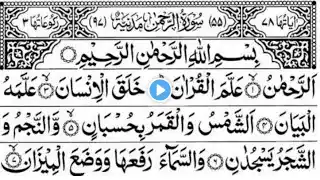 اٰيَاتُهَا ٧٨ (٥٥) سُوْرَةُ الرَّحْمٰنِ مَدَنِيَّةٌ (٩٧) رُكُوْعَاتُهَا ٣
بِسْمِ اللّٰهِ الرَّحْمٰنِ الرَّحِيْمِ
اَلرَّحْمٰنُ ۝١ عَلَّمَ الْقُرْاٰنَ ۝٢ خَلَقَ الْاِنْسَانَ ۝٣ عَلَّمَهُ
الْبَيَانَ ۝٤ اَلشَّمْسُ وَ الْقَمَرُ بِحُسْبَانٍ ۝٥ وَّ النَّجْمُ وَ
الشَّجَرُ يَسْجُدٰنِ ۝٦ وَ السَّمَآءَ رَفَعَهَا وَ وَضَعَ الْمِيْزَانَ ۝٧